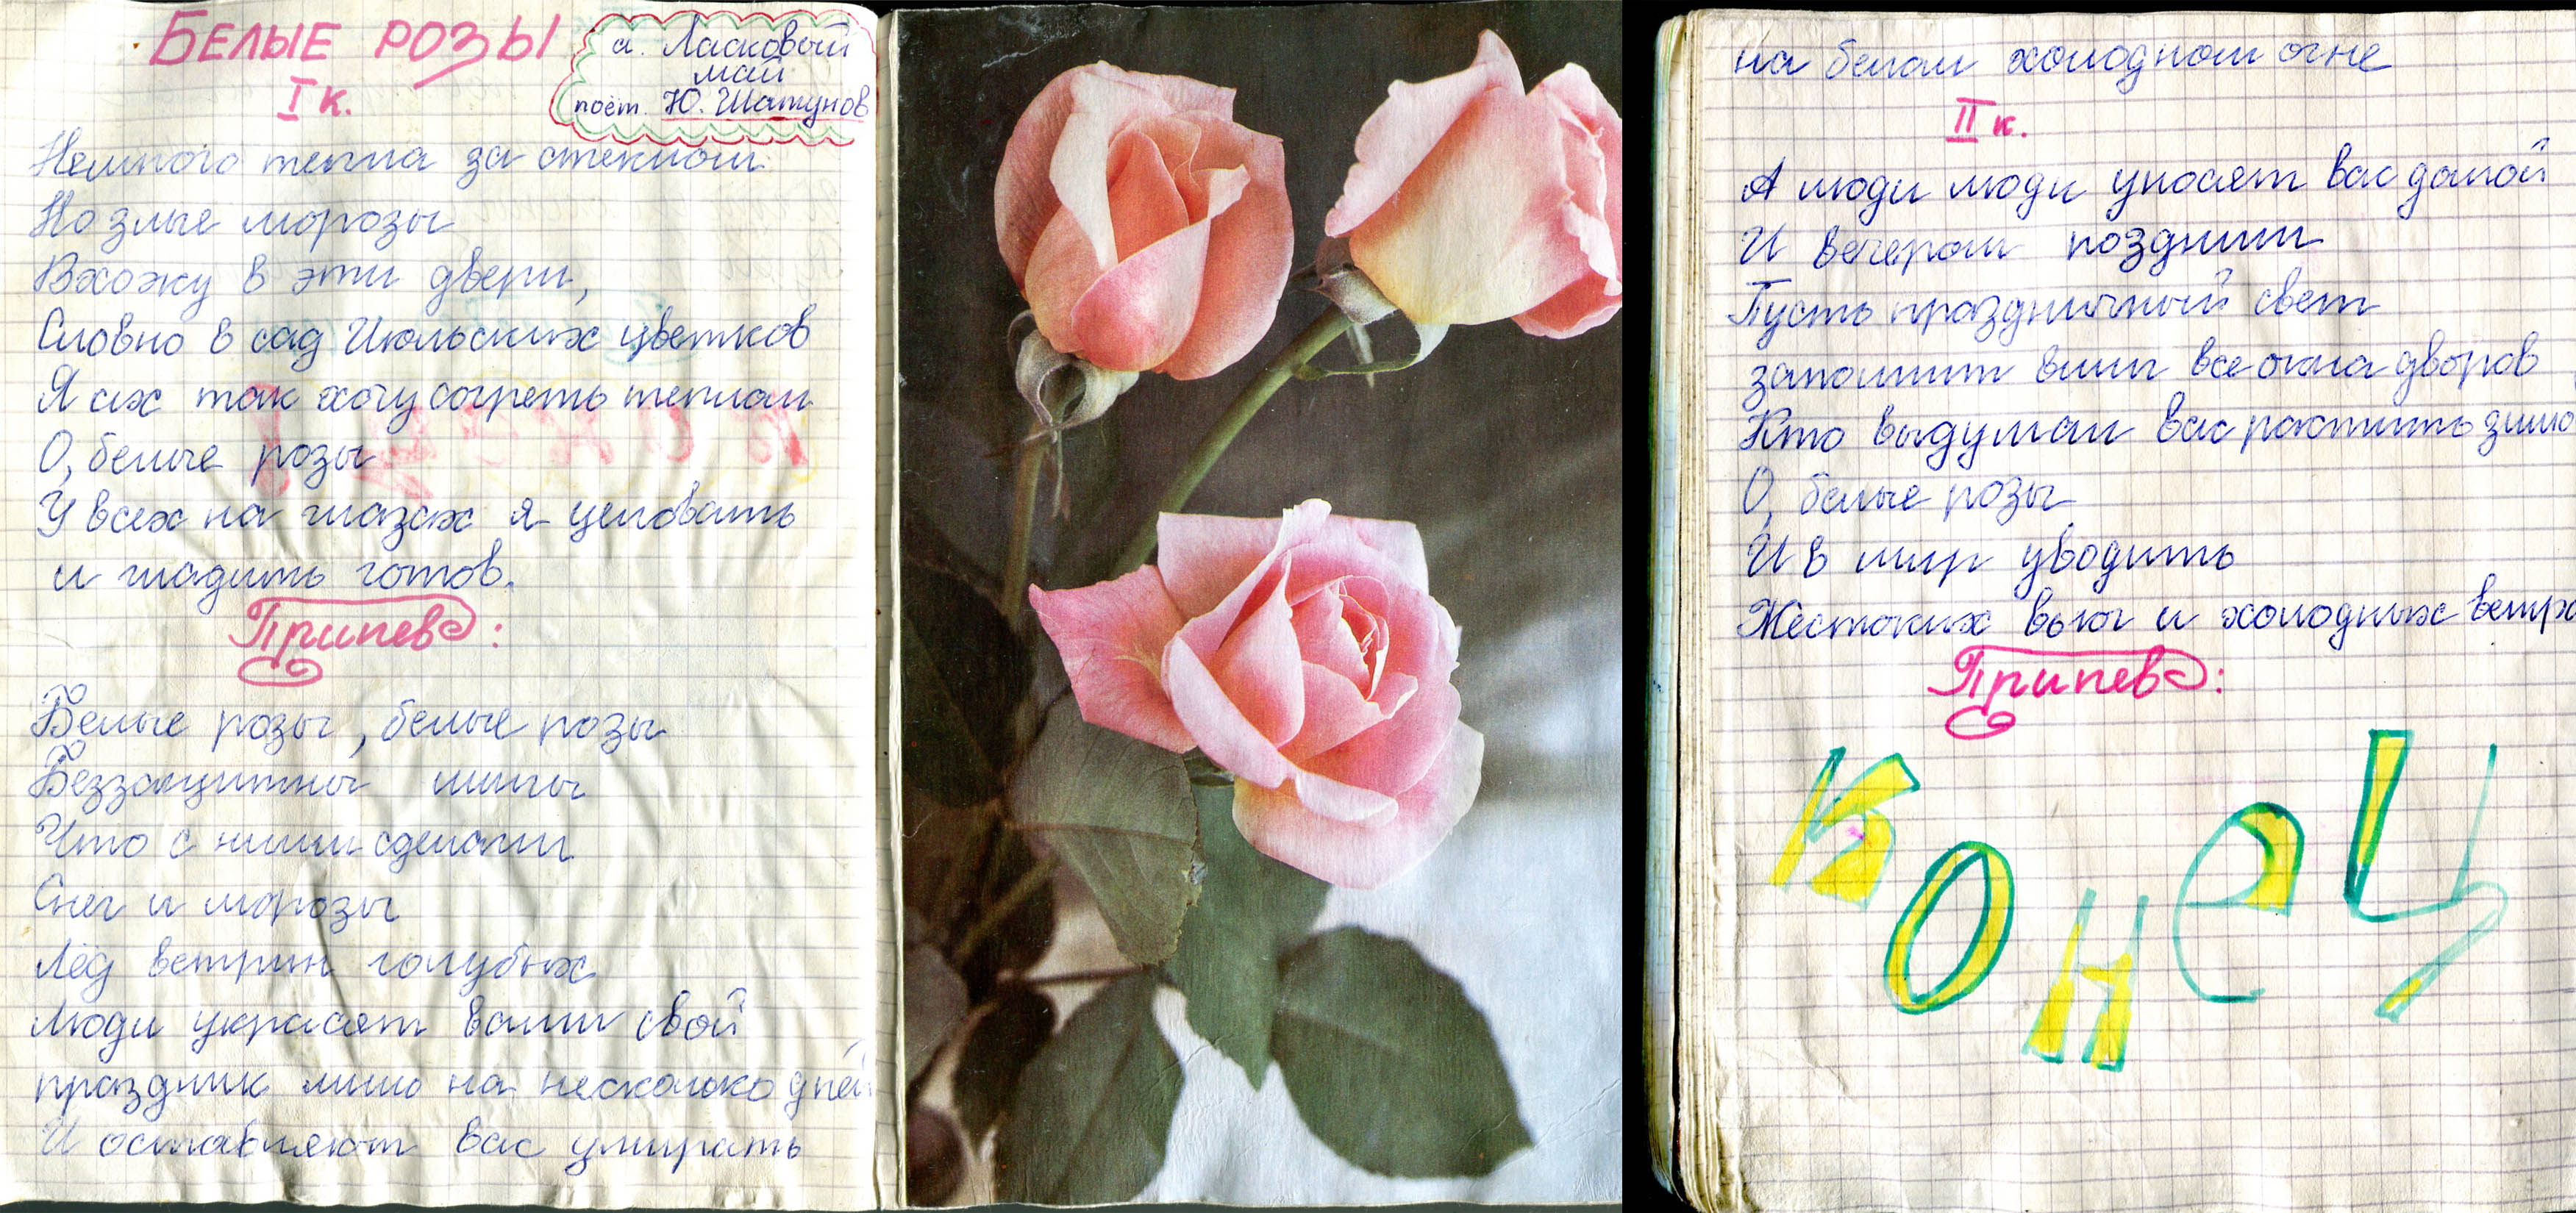 БЕЛЫЕ РОЗЫ
а. Ласковый
май
поёт. Ю. Шатунов
I к.
Немного тепла за стеклом
Но злые морозы
Вхожу в эти двери,
Словно в сад Июльских цветков
Я их так хочу согреть теплом
О, белые розы
У всех на глазах я целовать
и гладить готов.
Припев:
Белые розы, белые розы
Беззащитны шипы
Что с ними сделали
Снег и морозы
Лёд ветрин голубых
Люди украсят вами свой
праздник лишь на несколько дней
И оставляют вас умирать
на белом холодном окне
II к.
А люди люди уносят вас домой
И вечером поздним
Пусть праздничный свет
заполнит вмиг все окна дворов
Кто выдумал вас растить зимо
О, белые розы
И в мир уводить
Жестоких вьюг и холодных ветро
Припев:
Конец